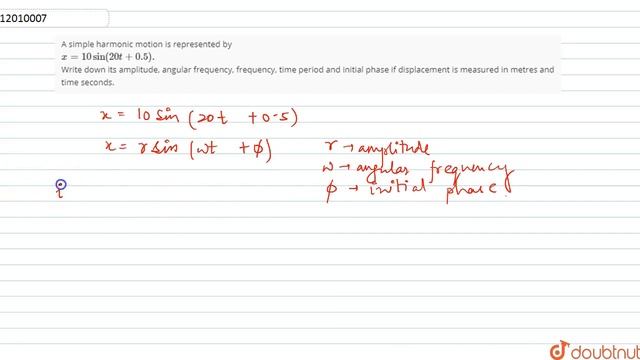 12010007
A simple harmonic motion is represented by
x = 10 sin(20t + 0.5).
Write down its amplitude, angular frequency, frequency, time period and initial phase if displacement is measured in metres and
time seconds.
x = 10 sin (20t + 0.5)
x = r sin (wt + ϕ) r → amplitude
w → angular frequency
ϕ → initial phase
i
doubtnut